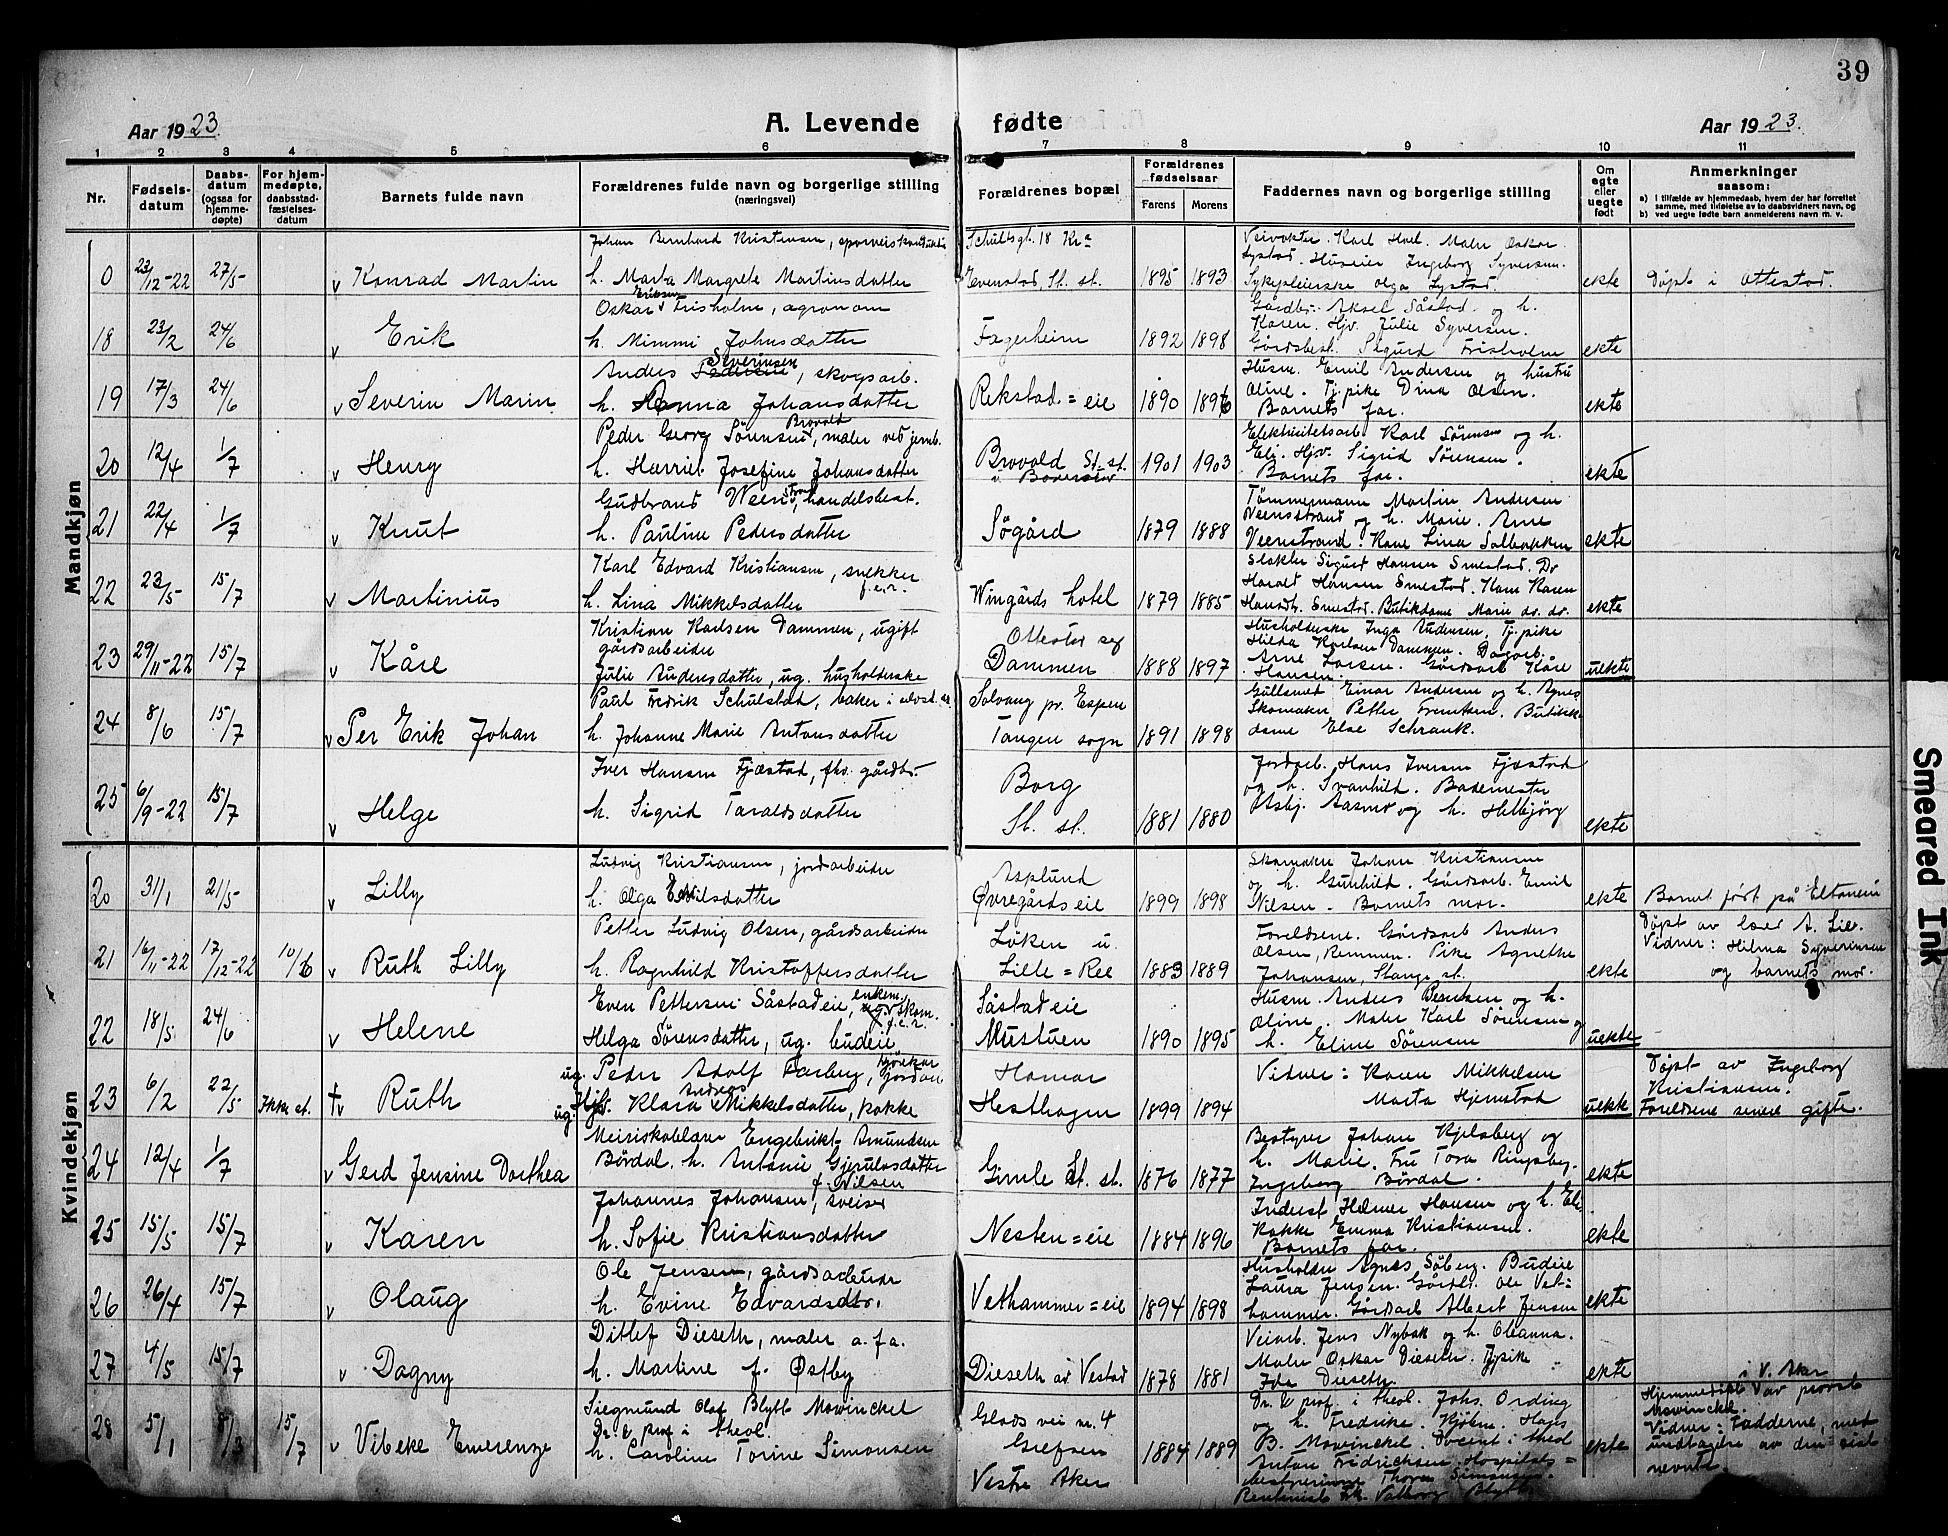 39
Aar 1923.
A. Levende fødte
Aar 1923.
1 2 3 4 5 6 7 8 9 10 11
Nr.
Fødsels-
datum
Daabs-
datum
(ogsaa for
hjemme-
døpte)
For hjem-
medøpte,
daabsstad-
fæstelses-
datum
Barnets fulde navn
Forældrenes fulde navn og borgerlige stilling
(næringsvei)
Forældrenes bopæl
Forældrenes
fødselsaar
Farens Morens
Faddernes navn og borgerlige stilling
Om
egte
eller
uegte
født
Anmerkninger
saasom:
a) I tilfælde av hjemmedaab, hvem der har forrettet
samme, med tilføielse av to daabsvidners navn, og
b) ved uegte fødte barn anmelderens navn m. v.
Mandkjøn
Johan Bernhard Kristensen, sporveiskonduktør
Schultsgt. 18 Kra
Veivokter Karl Hoel. Maler Oskar
Lystad. Huseier Ingeborg Syversen.
0 23/12-22 27/5 v Konrad Martin h. Marta Margrete Martinsdatter Evenstad, St. st. 1895 1893 Sykepleierske Olga Lystad. ekte Døpt i Ottestad.
Eriksen
Oskar Frisholm, agronom
Gårdbr. Aksel Såstad og h.
Karen. Hjv. Julie Syversen.
18 23/2 24/6 v Erik h. Mimmi Johnsdatter Fagerheim 1892 1898 Gårdsbest. Sigurd Frisholm ekte
Severinsen
Anders, skogsarb.
Husm. Emil Andersen og hustru
Oline. Tj.pike Dina Olsen.
19 17/3 24/6 v Severin Marin h. Anna Johansdatter Rekstad=eie 1890 1896 Barnets far. ekte
Brovold
Peder Georg Sørensen, maler ved jernb.
Elektricitetsarb. Karl Sørensen og h.
Eli. Hjv. Sigrid Sørensen.
20 12/4 1/7 v Henry h. Harriet Josefine Johansdatter Brovold St. st. 1901 1903 Barnets far. ekte
Gudbrand Veenstrand, handelsbest.
Tømmermann Martin Andersen
Veenstrand og h. Marie. Arne
21 22/4 1/7 v Knut h. Pauline Pedersdatter Søgård 1879 1888 Veenstrand. Kone Lina Solbakken ekte
Karl Edvard Kristiansen, snekker
f.e.r.
Slakter Sigurd Hansen Smestad. Do
Harald Hansen Smestad. Kone Karen
22 23/5 15/7 v Martinius h. Lina Mikkelsdatter Wingårds hotel 1879 1885 Smestad. Butikdame Marie do. do. ekte
Kristian Karlsen Dammen, ugift
gårdsarbeider
Husholderske Inga Andersen. Tj.pike
Hilda Karlsen Dammen. Dagarb.
23 29/11-22 15/7 v Kåre Julie Andersdatter, ug. husholderske Ottestad sogn Dammen 1888 1897 Arne Larsen. Gårdsarb. Kåre Hansen. uekte
Paul Fredrik Schulstad, baker
Solvang pr. Espen
Gullsmed Einar Andersen og h. Agnes
Skomaker Petter Fremstsen. Butikk-
24 8/6 15/7 v Per Erik Johan h. Johanne Marie Antonsdatter Tangen sogn 1891 1898 dame Else Schrank.
Iver Hansen Fjæstad, fhv. gårdbr.
Borg
Jordarb. Hans Iversen Fjæstad
og h. Svanhild. Bademester
25 6/9-22 15/7 v Helge h. Sigrid Taraldsdatter St. st. 1881 1880 Asbj. Aasmo og h. Helbjørg ekte
Kvindekjøn
Ludvig Kristiansen, jordarbeider
Asplund
Skomaker Johan Kristiansen
og h. Gunhild. Gårdsarb. Emil
20 31/1 21/5 v Lilly h. Olga Emilsdatter Øvregårdseie 1899 1898 Nilsen. Barnets mor. ekte Barnet født på Eltanen
Petter Ludvig Olsen, gårdsarbeider
Løken u.
Foreldrene. Gårdsarb. Anders
Olsen, Remmen. Pike Agnethe
Døpt av lærer A. Lie.
Vidner: Hilma Syverinsen
21 16/11-22 17/12-22 10/6 v Ruth Lilly h. Ragnhild Kristoffersdatter Lille=Ree 1883 1889 Johansen, Stange st. ekte og barnets mor.
Even Pettersen Såstadeie, enkem. skom.
f.e.r.
Såstadeie
Husm. Anders Berntsen og h.
Oline. Maler Karl Sørensen og
22 18/5 24/6 v Helene Helga Sørensdatter, ug. budeie Mustuen 1890 1895 h. Eline Sørensen uekte
ug. Peder Adolf Farberg,
Hamar
Vidner: Karen Mikkelsen
Døpt av Ingeborg
Kristiansen.
23 6/2 22/5 Ikke st. †v Ruth ug. Klara Mikkelsdatter, kokke Hesthagen 1899 1894 Marta Hjemstad uekte Foreldrene senere gifte.
Meieriskolelærer Engebrikt Amundsen
Bestyrer Johan Kjelsberg og
h. Marie. Fru Tora Ringsby.
24 12/4 1/7 v Gerd Jensine Dorthea Børdal. h. Antonie Gjerulvsdatter Gimle St. st. 1876 1877 Ingeborg Børdal. ekte
f. Nilsen
Johannes Johansen, sveiser
Inderst Helmer Hansen og h. Eli.
Kokke Emma Kristiansen.
25 15/5 15/7 v Karen h. Sofie Kristiansdatter Nesten=eie 1884 1896 Barnets far. ekte
Ole Jensen, gårdsarbeider
Husholder Agnes Søberg. Budeie
Laura Jensen. Gårdbr. Ole Vet-
26 26/4 15/7 v Olaug h. Evine Edvardsdtr. Vethammer=eie 1894 1898 hammer. Gårdsarb Albert Jensen ekte
Ditlef Dieseth, maler a.f.a.
Veiarb. Jens Nybak og h. Oleanna.
Maler Oskar Dieseth. Tj.pike
27 4/5 15/7 v Dagny h. Martine f. Østby Dieseth av Vestad 1878 1881 Ida Dieseth. ekte
Siegmund Olaf Blytt Mowinckel
Dr. & prof i theol.
Glads vei nr. 4
Dr. & prof. i theol. Johs. Ording
og h. Fredrikke. Kjøbm. Hans
i V. Aker
Hjemmedøpt av provst
Mowinckel.
28 5/1 8/3 15/7 v Vibeke Emerenze h. Caroline Torine Simonsen Grefsen 1884 1889 B. Mowinckel. Docent i theol ekte Vidner: Fadderne, med
Vestre Aker
Anton Fridrichsen. Hospitals=
bestyrerinne Thora Simonsen.
Rentenist Frk. Valborg Blytt.
undtagelse av den sist
nevnte.
Smeared Ink